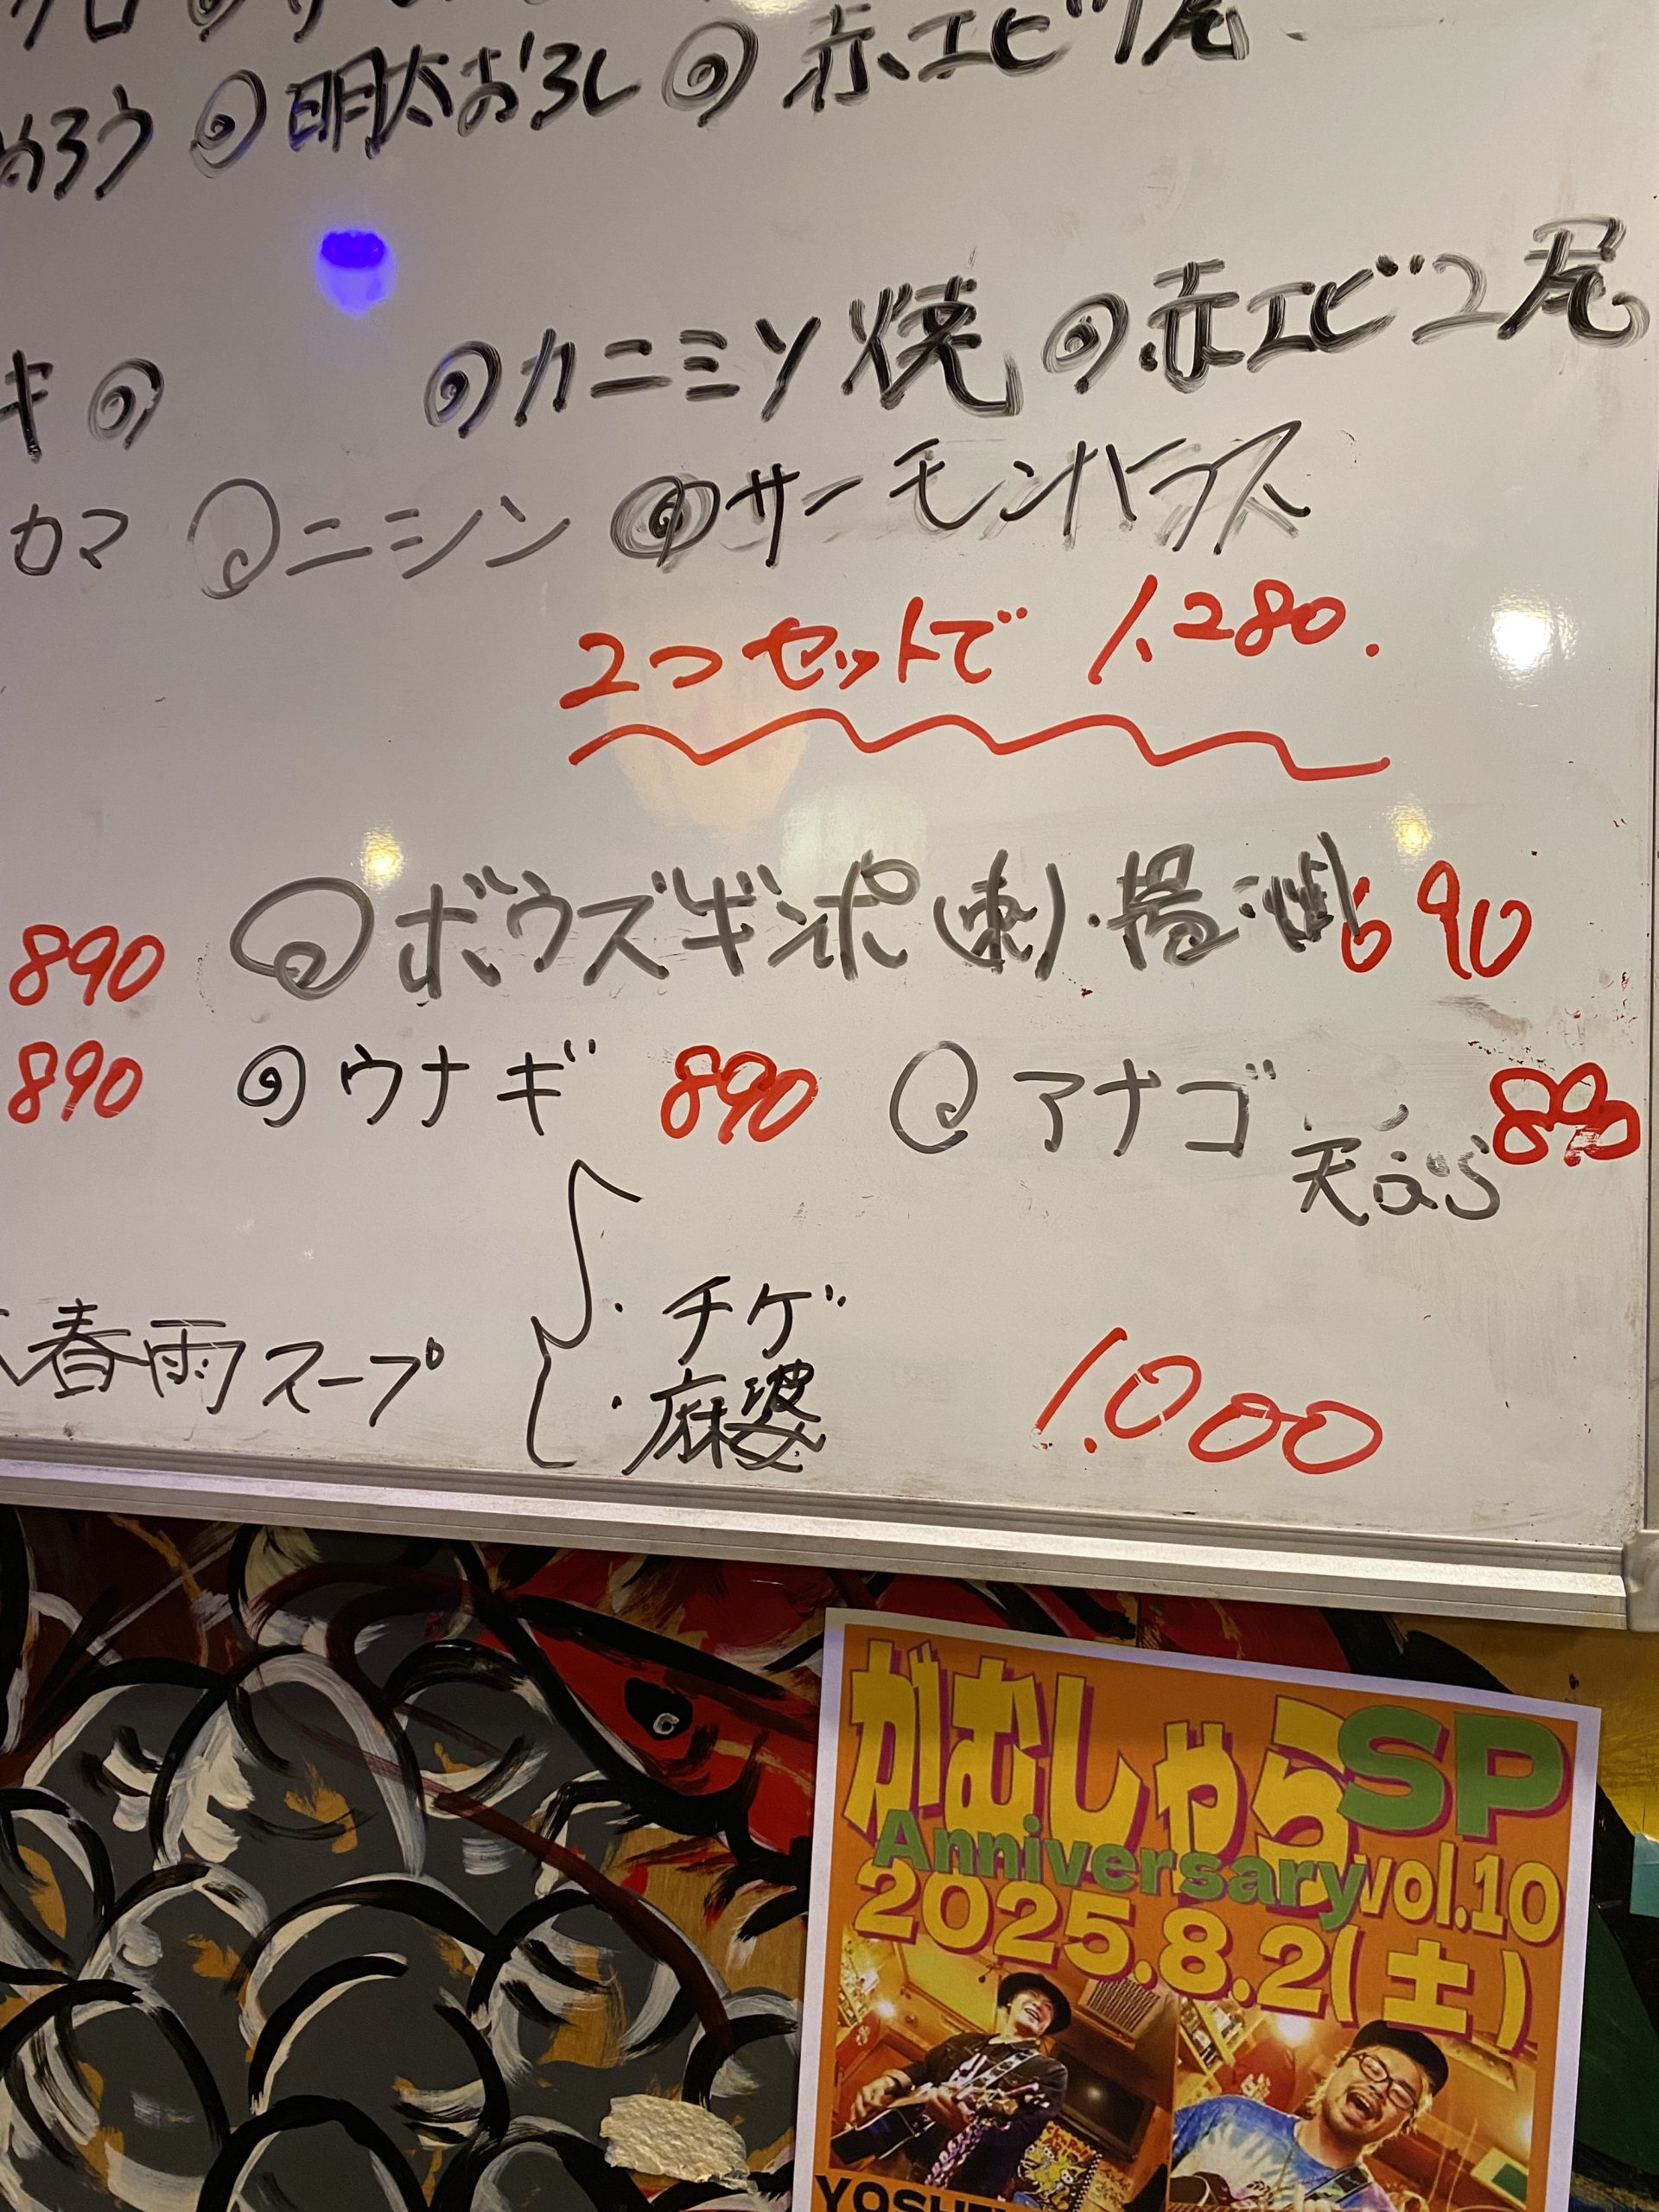 めろう ◎明太おろし ◎赤エビ1尾
キ◎ ◎カニミソ焼 ◎赤エビ2尾
カマ ◎ニシン ◎サーモンハラス
2つセットで 1.280.
890 ◎ボウズギンポ(刺)・揚 690
890 ◎ウナギ 890 ◎アナゴ 890
天ぷら
・チゲ
春雨スープ
・麻婆 1.000
がむしゃらSP
Anniversary vol.10
2025.8.2(土)